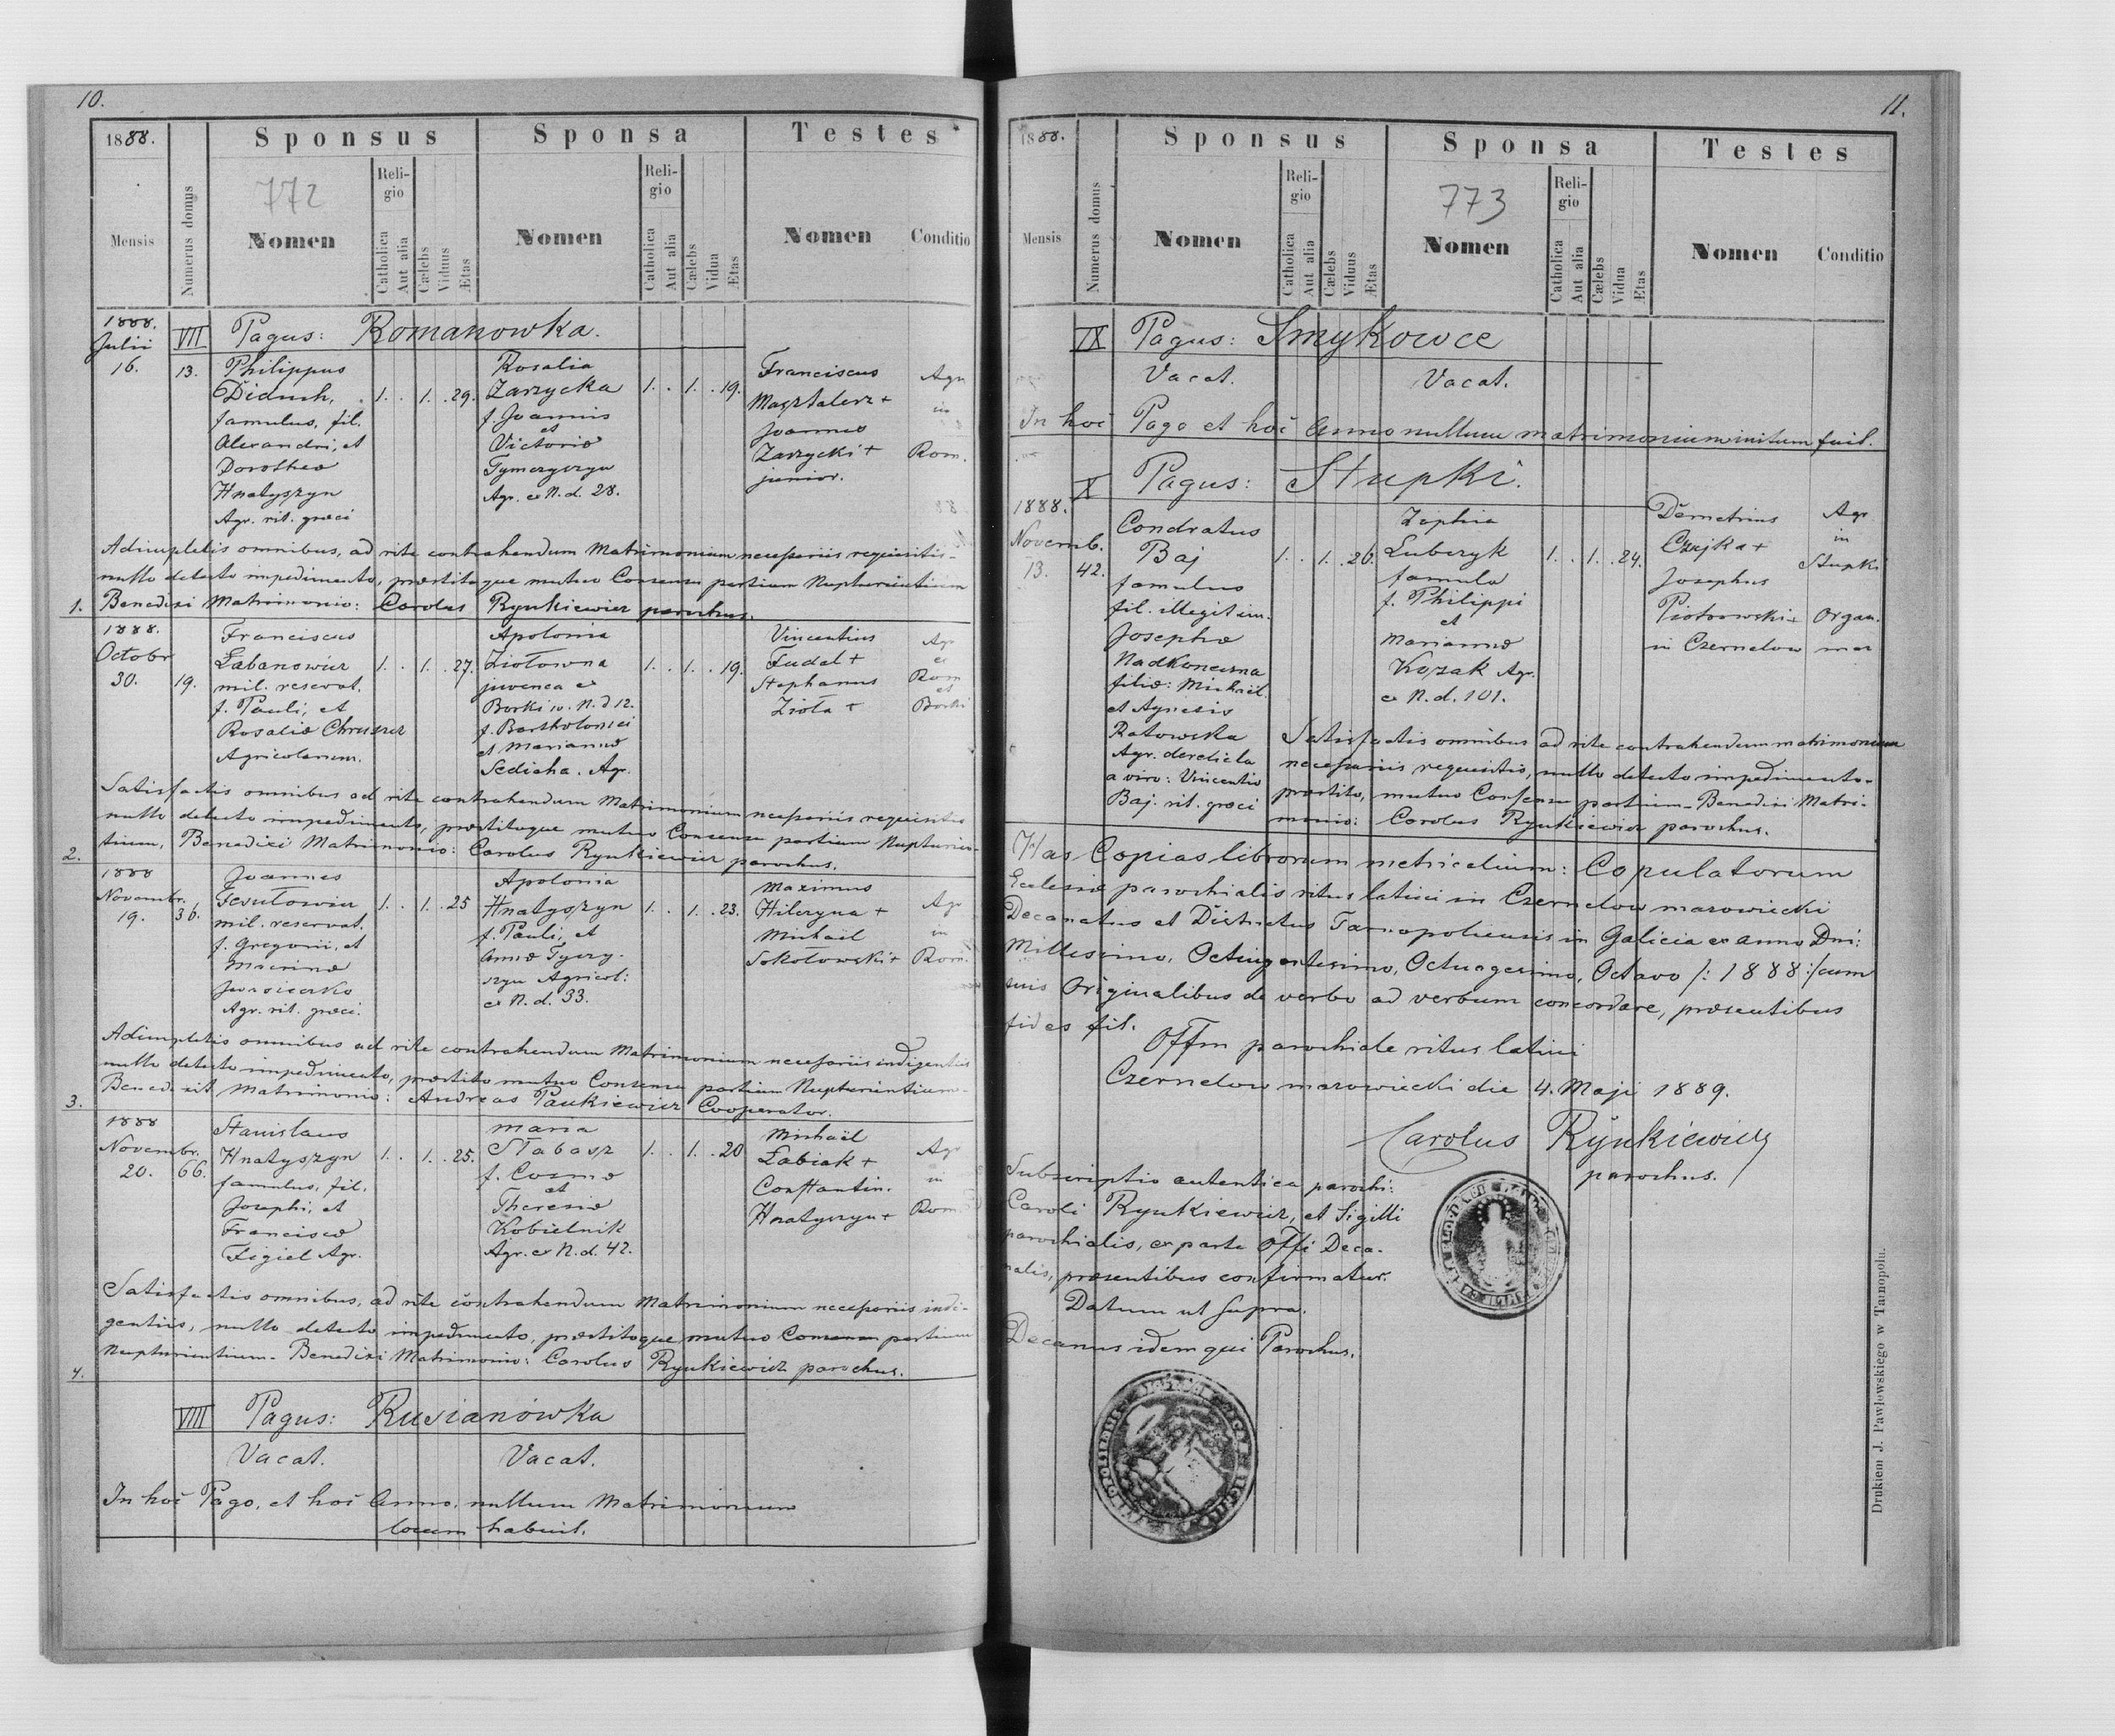 10.
1888.
Sponsus
Sponsa
Testes
Mensis
Numerus domus
772
Nomen
Religio
Catholica
Aut alia
Cælebs
Viduus
Ætas
Nomen
Religio
Catholica
Aut alia
Cælebs
Vidua
Ætas
Nomen
Conditio
VII Pagus: Romanowka.
1888.
Julii
16.
13.
Philippus
Diduch,
famulus, fil.
Alexandri, et
Dorotheæ
Hnatyszyn
Agr. rit. græci
1. . 1. . 29.
Rosalia
Zarzycka
f. Joannis
et
Victoriæ
Tymczyszyn
Agr. ex N. d. 28.
1. . 1. . 19.
Franciscus
Masztalerz +
Joannes
Zarzycki +
junior.
Agr.
in
Rom.
Adimpletis omnibus, ad rite contrahendum Matrimonium necessariis requisitis-
nullo detecto impedimento, præstitoque mutuo Consensu partium Nupturientium
1. Benedixi Matrimonio: Carolus Rynkiewicz parochus.
1888.
Octobr
30.
19.
Franciscus
Łabanowicz
mil. reservat.
f. Pauli, et
Rosaliæ Chruszcz
Agricolarum.
1. . 1. . 27.
Apolonia
Ziołowna
juvenca ex
Borki w. N. d 12.
f. Bartholomei
et Mariannæ
Sedicha. Agr.
1. . 1. . 19.
Vincentius
Fudal +
Stephanus
Zioła +
Agr
ex
Rom
et
Borki
Satisfactis omnibus ad rite contrahendum Matrimonium necessariis requisitis
nullo detecto impedimento, præstitoque mutuo Consensu partium Nupturien-
2. tium, Benedixi Matrimonio: Carolus Rynkiewicz parochus.
1888
Novembr.
19.
36.
Joannes
Jesułowicz
mil. reservat.
f. Gregorii, et
Macrinæ
Agr. rit. græci.
1. . 1. . 25
Apolonia
Hnatyszyn
f. Pauli, et
Annæ Tycz-
szyn Agricol:
ex N. d. 33.
1. . 1. . 23.
Maximus
Hilczyna +
Michaël
Sokołowski +
Agr
in
Rom.
Adimpletis omnibus ad rite contrahendum Matrimonium necessariis indigentiis
nullo detecto impedimento, præstito mutuo Consensu partium Nupturientium-
3. Benedixit Matrimonio: Andreas Paukiewicz Cooperator.
1888
Novembr.
20.
66.
Stanislaus
Hnatyszyn
famulus, fil.
Josephi, et
Franciscæ
Figiel Agr.
1. . 1. . 25.
Maria
Słabosz
f. Cosmæ
et
Theresiæ
Kobielnik
Agr. ex N. d. 42.
1. . 1. . 20
Michaël
Łabiak +
Constantin.
Hnatyszyn +
Agr
in
Rom
Satisfactis omnibus, ad rite contrahendum Matrimonium necessariis indi-
gentiis, nullo detecto impedimento, præstitoque mutuo Consensu partium
4. Nupturientium- Benedixi Matrimonio: Carolus Rynkiewicz parochus.
VIII Pagus: Rusianówka
Vacat. Vacat.
In hoc Pago, et hoc Anno, nullum Matrimonium
locum habuit.
11.
1888.
Sponsus
Sponsa
Testes
Mensis
Numerus domus
Nomen
Religio
Catholica
Aut alia
Cælebs
Viduus
Ætas
773
Nomen
Religio
Catholica
Aut alia
Cælebs
Vidua
Ætas
Nomen
Conditio
IX Pagus: Smykowce
Vacat. Vacat.
In hoc Pago et hoc Anno nullum matrimonium initum fuit.
X Pagus: Stupki.
1888.
Novemb.
13.
42.
Condratus
Baj
famulus
fil. illegitim.
Josephæ
Nadkoneczna
filiæ: Michaël.
et Agnetis
Ratowska
Agr. derelicta
a viro: Vincentio
Baj. rit. græci
1. . 1. . 26.
Zophia
Lubczyk
famula
f. Philippi
et
Mariannæ
Kozak Agr.
ex N. d. 101.
1. . 1. . 24.
Demetrius
Czajka +
Josephus
Piotrowski +
in Czernelow
Agr
in
Stupki
Organ.
maz
Satisfactis omnibus ad rite contrahendum matrimonium
necessariis requisitis, nullo detecto impedimento-
præstito, mutuo Consensu partium- Benedixi Matri-
monio: Carolus Rynkiewicz parochus.
Has Copias librorum metricalium: Copulatorum
Ecclesiæ parochialis ritus latini in Czernelow mazowiecki
Decanatus et Districtus Tarnopoliensis in Galicia ex anno Dni:
Millesimo, Octingentesimo, Octuagesimo, Octavo /: 1888 :/ cum
suis Originalibus de verbo ad verbum concordare, præsentibus
fides fit.
Offm parochiale ritus latini
Czernelow mazowiecki die 4. Maji 1889.
Carolus Rynkiewicz
parochus.
Subscriptio autentica parochi:
Caroli Rynkiewicz, et Sigilli
parochialis, ex parte Offi Deca-
nalis, præsentibus confirmatur.
Datum ut supra.
Decanus idemqui Parochus.
Drukiem J. Pawłowskiego w Tarnopolu.